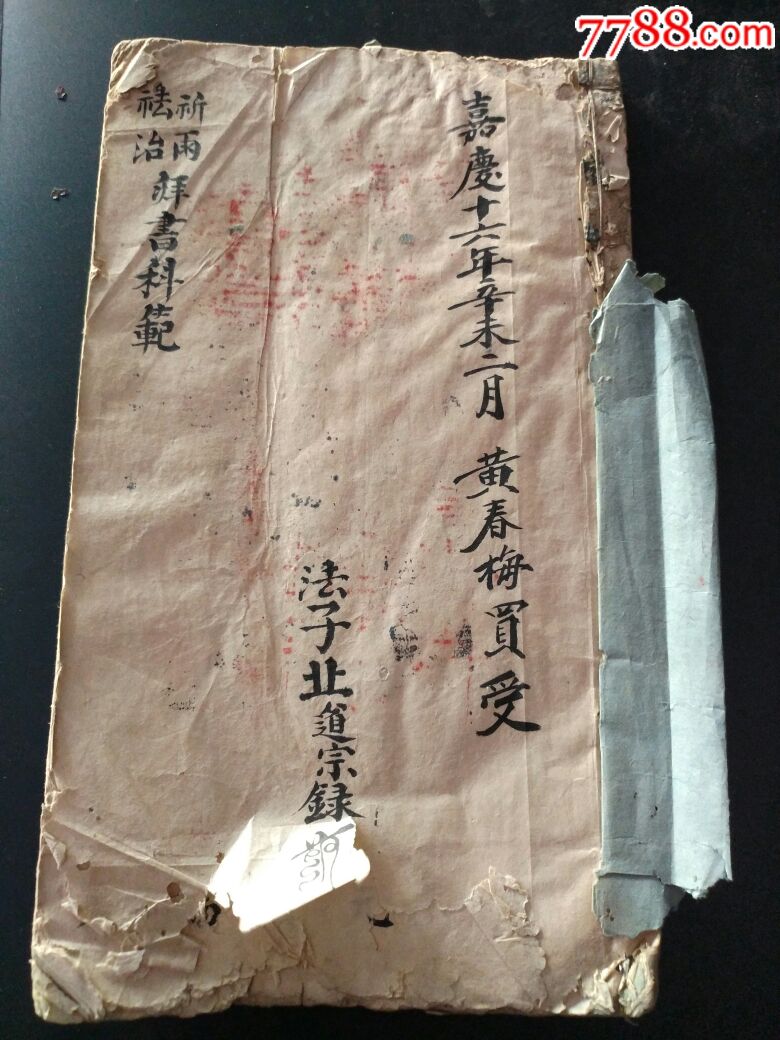 7788.com
嘉慶十六年辛未二月 黄春梅買受
法子
道宗録
祈雨
祛治
拜書科範